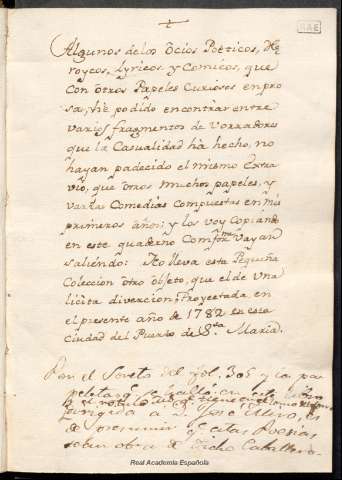 RAE
Algunos de los Ocios Poeticos, He
roycos, Lyricos y Comicos, que
con otros Papeles Curiosos en pro
sa, hè podido encontrar entre
varios fragmentos de Vorradores
que la Casualidad hà hecho, no
hayan padecido el mismo Extra
vìo, que otros muchos papeles, y
varias Comedias compuestas en mis
primeros años; y los voy Copiando
en este quaderno Comfme vayan
saliendo: No lleva esta Pequeña
Coleccion otro objeto, que el de una
licita divercion; Proyectada en
el presente año de 1782 en esta
Ciudad del Puerto de Sta Maria.
Por el Soneto del fol. 305 y la pa
peleta q se halló en este
dirigida a D. Jose
de presumir q estas Poesias
sean obra de dicho Caballero.
Real Academia Española